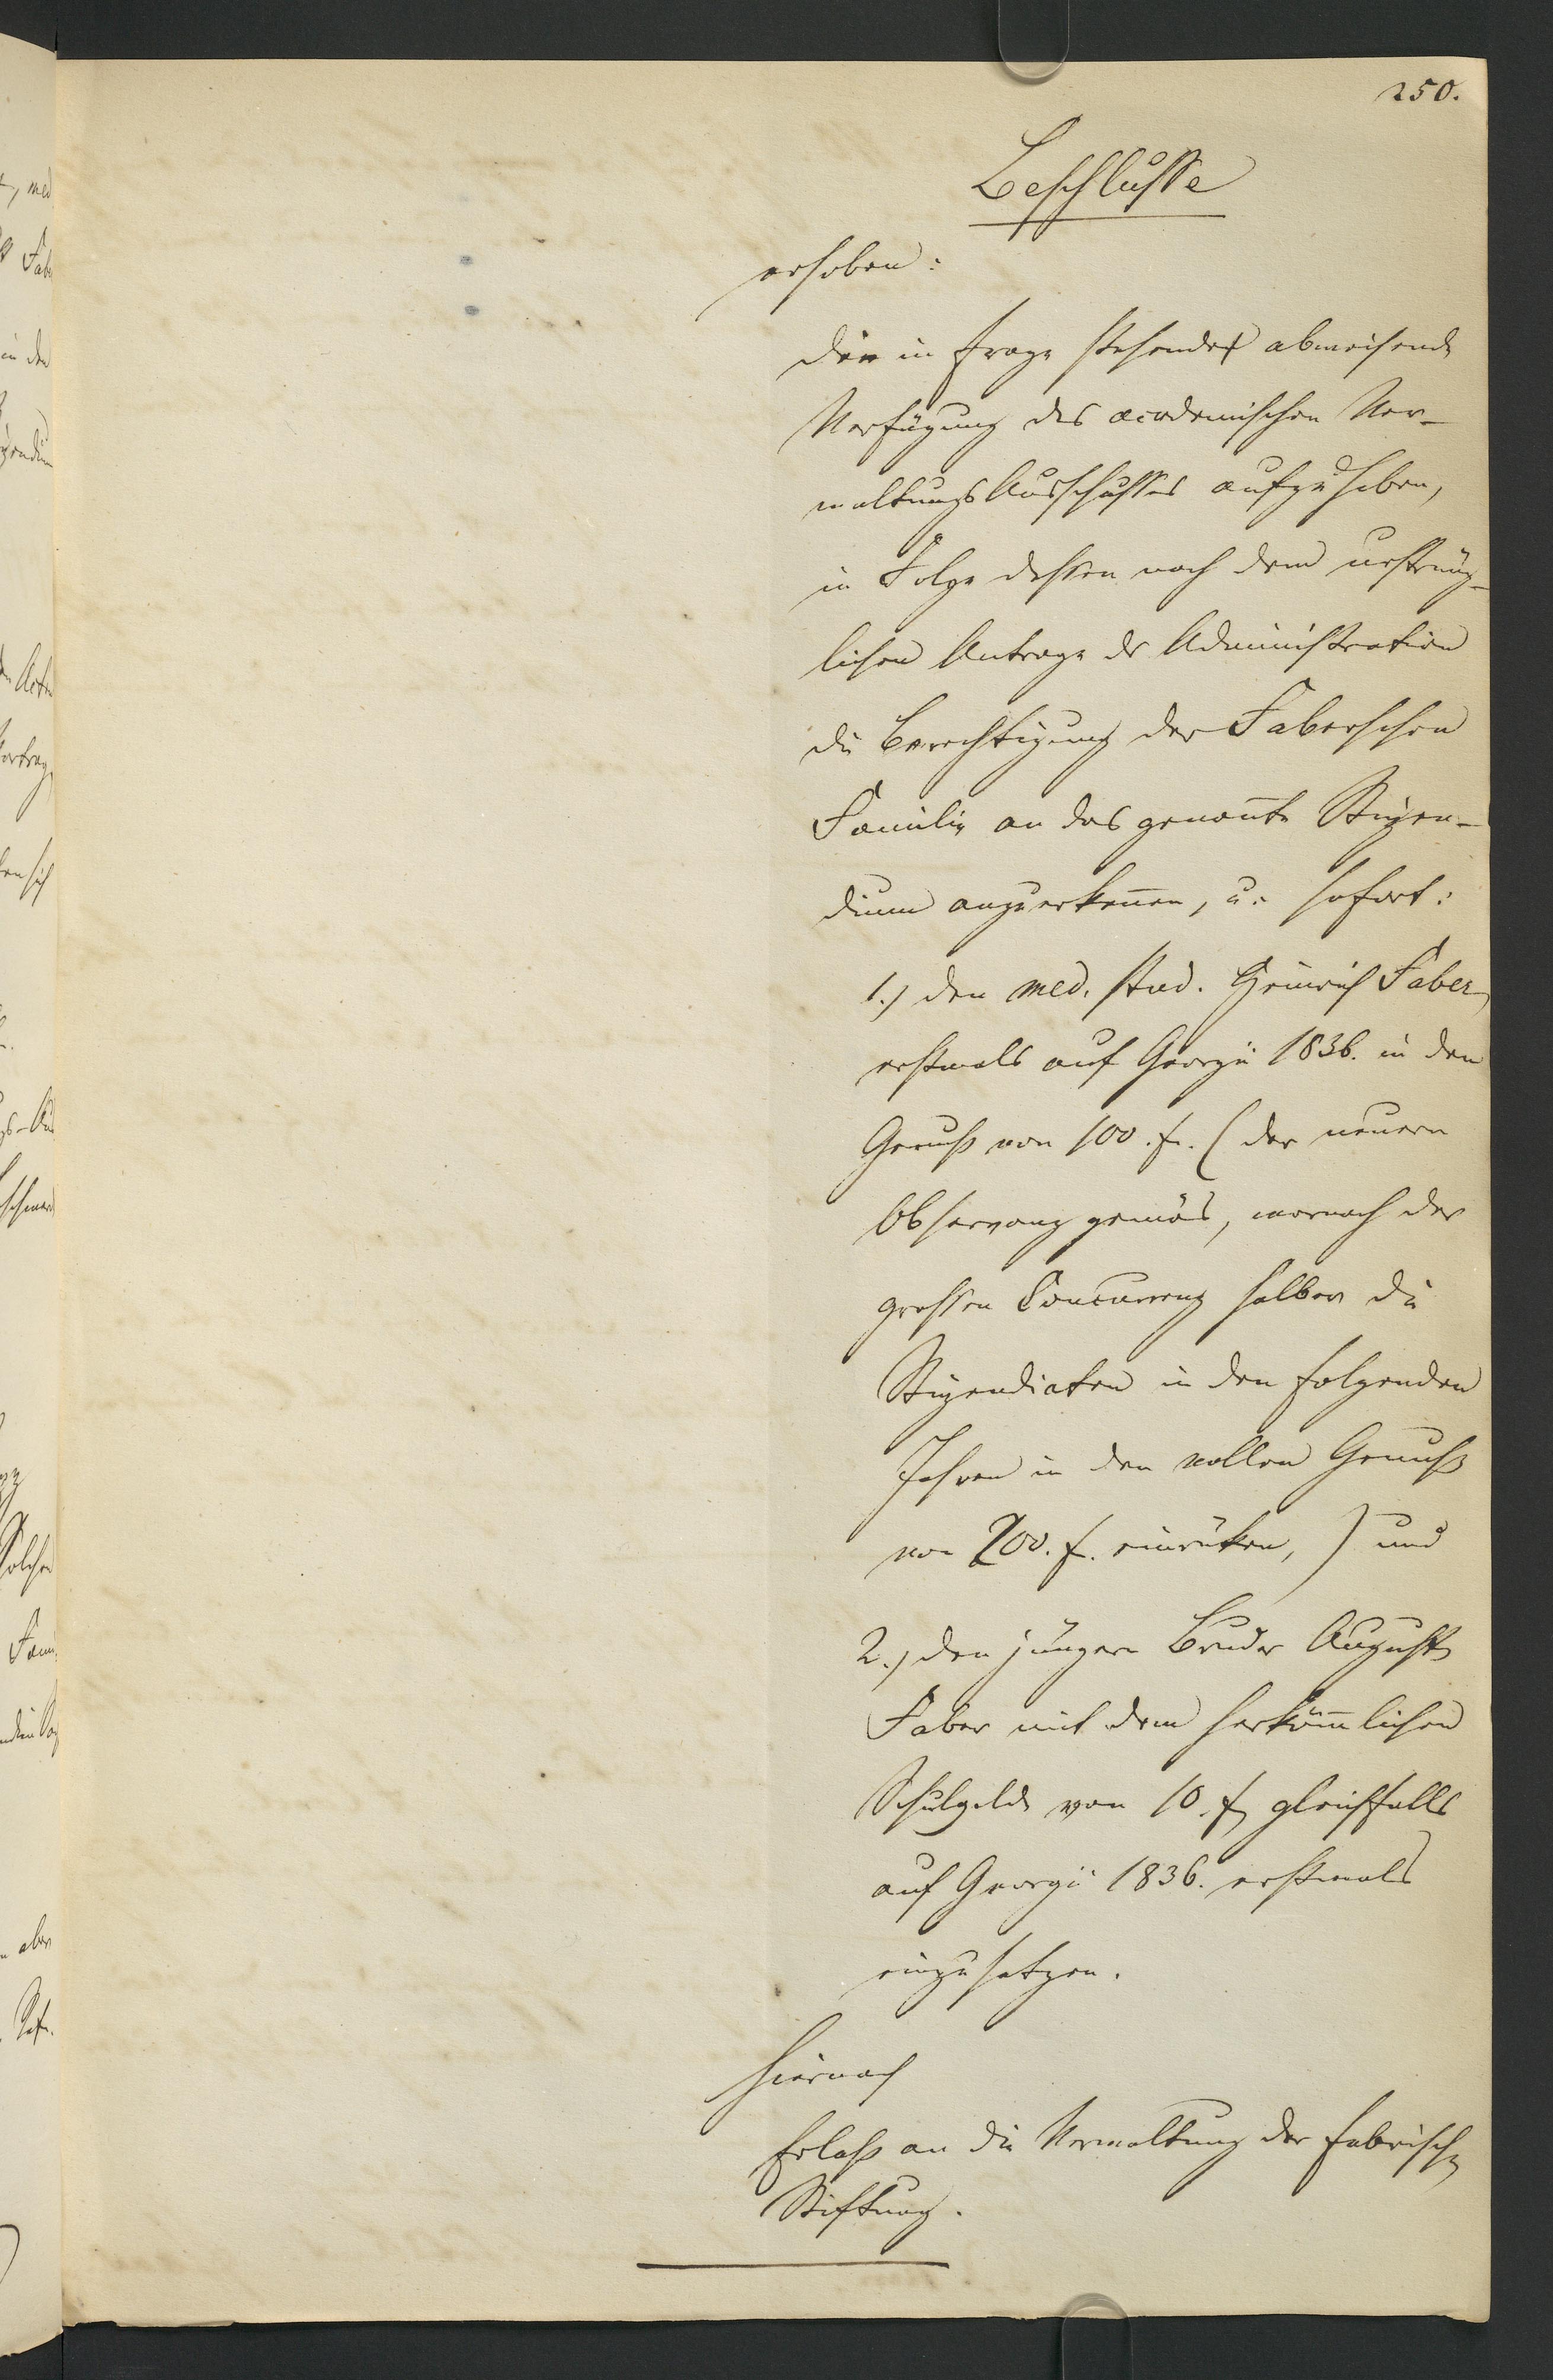 250.
Beschlusse
erhoben:
die in Frage stehende abweisende
Verfügung des academischen Ver-
waltungs Ausschusses aufzuheben,
in Folge dessen nach dem ursprüng-
lichen Antrage der Administration
die Berechtigung der Faberschen
Familie an das genan̄te Stipen-
dium anzuerken̄en, u. sofort:
1.) den med. stud. Heinrich Faber,
erstmals auf Georgii 1836. in den
Genuß von 100. f. (der neuern
Observanz gemäs, wornach der
grossen Concurrenz halber die
Stipendiaten in den folgenden
Jahren in den vollen Genuß
von 200. f. einrüken,) und
2.) den jüngern Bruder August
Faber mit dem herköm̄lichen
Schulgelde von 10. f. gleichfalls
auf Georgii 1836. erstmals
einzusetzen.
Hiernach
Erlaß an die Verwaltung der Fabrisch
Stiftung.